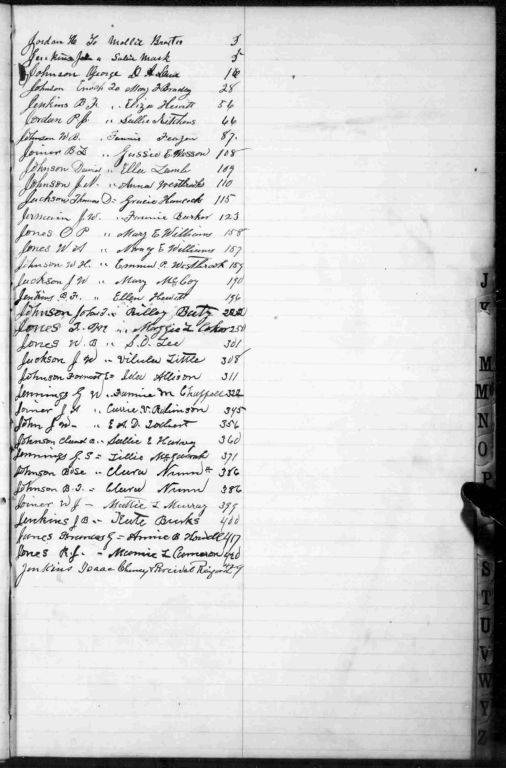 Jordan H To Mollie 3
Jenkins a Sallie Mask 5
Johnson George D 16
Johnson Enoch To Mary F Bradley 28
Jenkins B.F. " Eliza Hewitt 56
Jordan P.J. " Sallie Kitchens 66
Johnson W.B. " Fannie 87
Joiner B L " Gussie E Wesson 108
Johnson Daniel " Ella Lamb 109
Johnson J.N. " Anna Westbrook 110
Jackson Thomas D = Gracie Hancock 115
Jermain J.W. " Fannie Barker 123
Jones O P " Mary E Williams 158
Jones W A " Nancy E Williams 157
Johnson W.H. " Emma P. Westbrook 159
Jackson J W " Mary McCoy 190
Jenkins B.F. " Ellen Hewitt 196
Johnson John T. " Betty 222
Jones T.M " Maggie L Coker 250
Jones W.B " S.D. Lee 301
Jackson J W " Little 308
Johnson Forrest = Ida Allison 311
Jennings G W. Fannie M Chappell 322
Joiner J A " Carrie V. Robinson 345
John J W - " E A D. 356
Johnson Claud a = Sallie E Harvey 360
Jennings G.S = Lillie 371
Johnson Bose " Clara Nunn 386
Johnson B.F. = Clara Nunn 386
Joiner W J - Mattie L Murray 399
Jenkins J B = Kate Burks 400
Jones G = Annie B Howell 417
Jones R.J. = Mamie L Cameron 420
Jenkins Isaac Percival
J
M
M
N
O
P
S
T
U
V
W
Y
Z